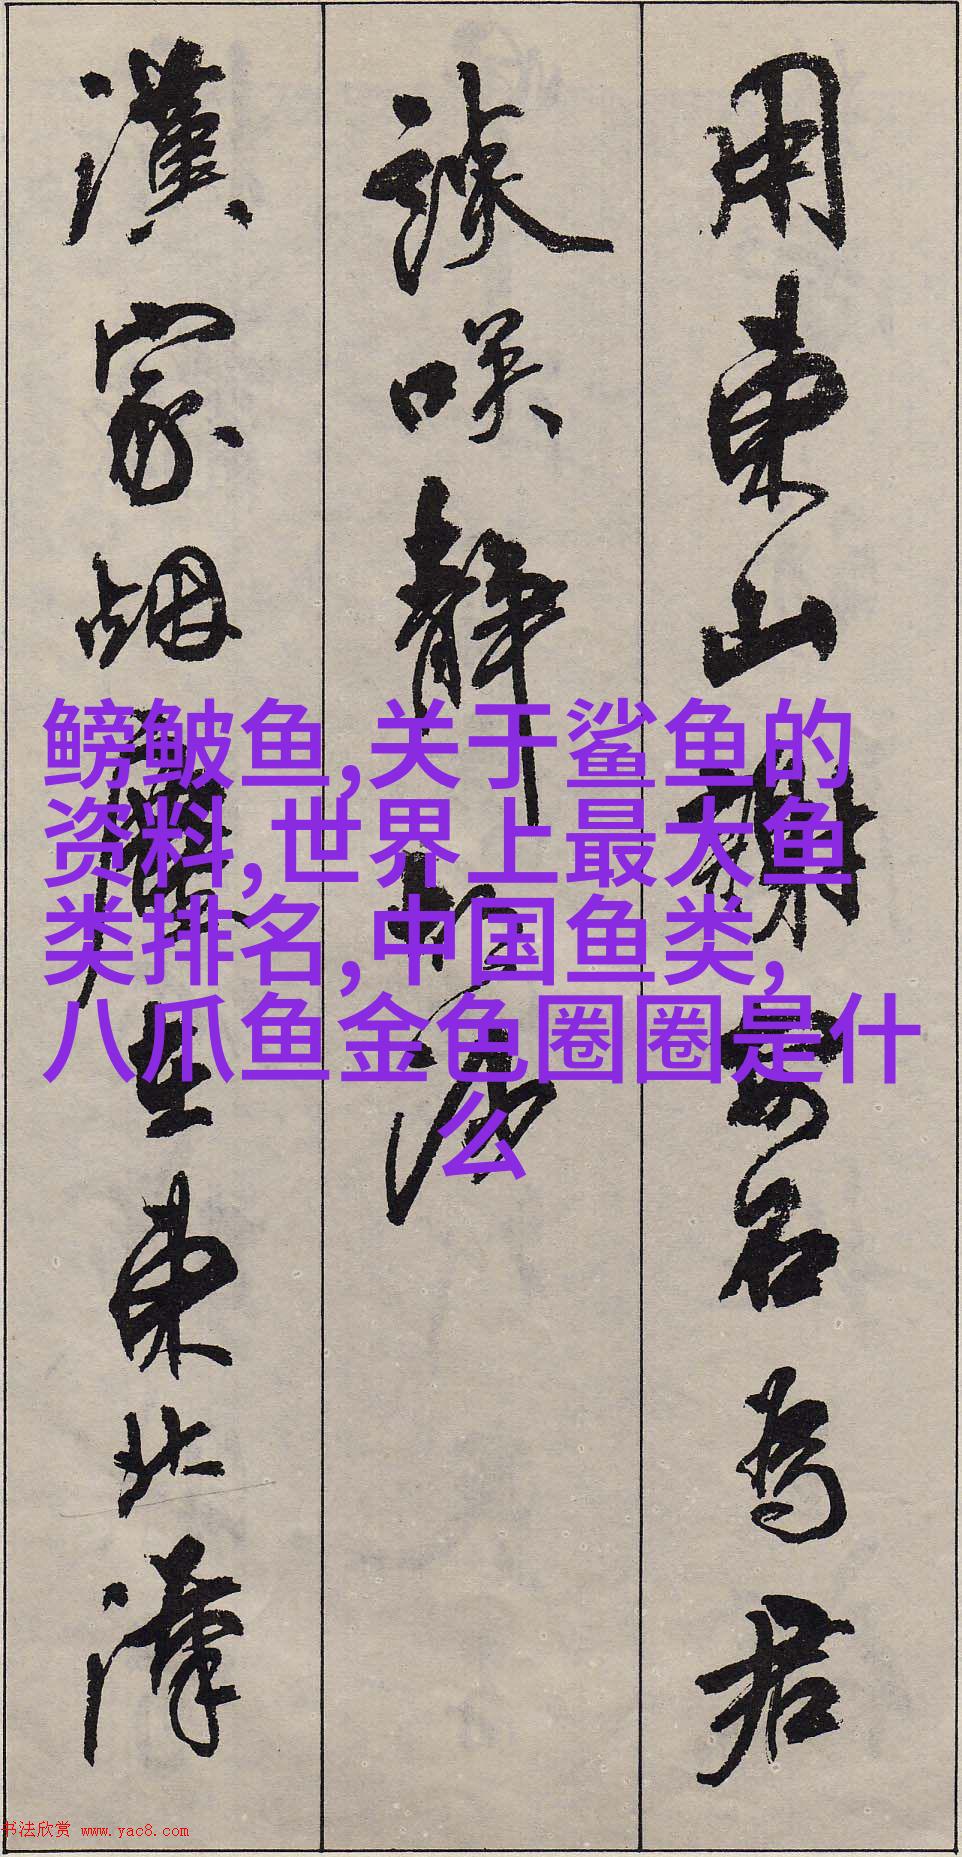 用東山謝安石為君
談咲靜胡沙
漢家烟塵在東北漢
鳑鲏鱼,关于鲨鱼的
资料,世界上最大鱼
类排名,中国鱼类,
八爪鱼金色圈圈是什
么
书法欣赏 www.yac8.com